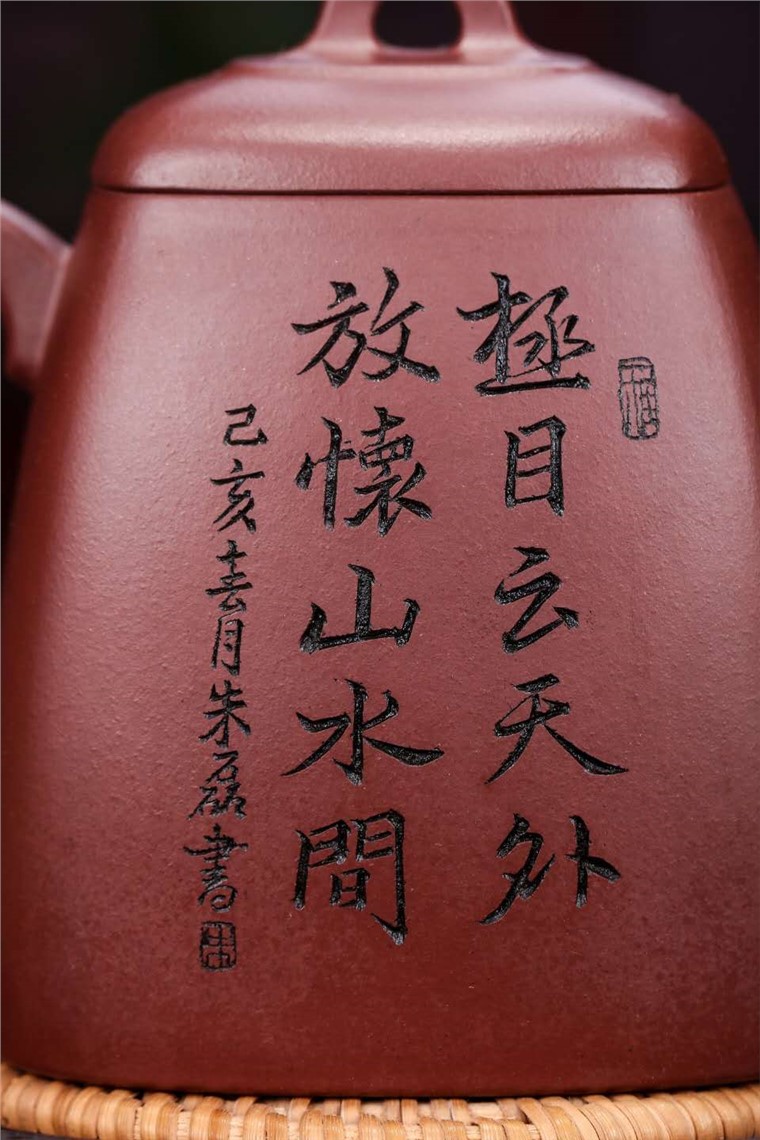 極目云天外
放懷山水間
己亥春月朱磊書
朱